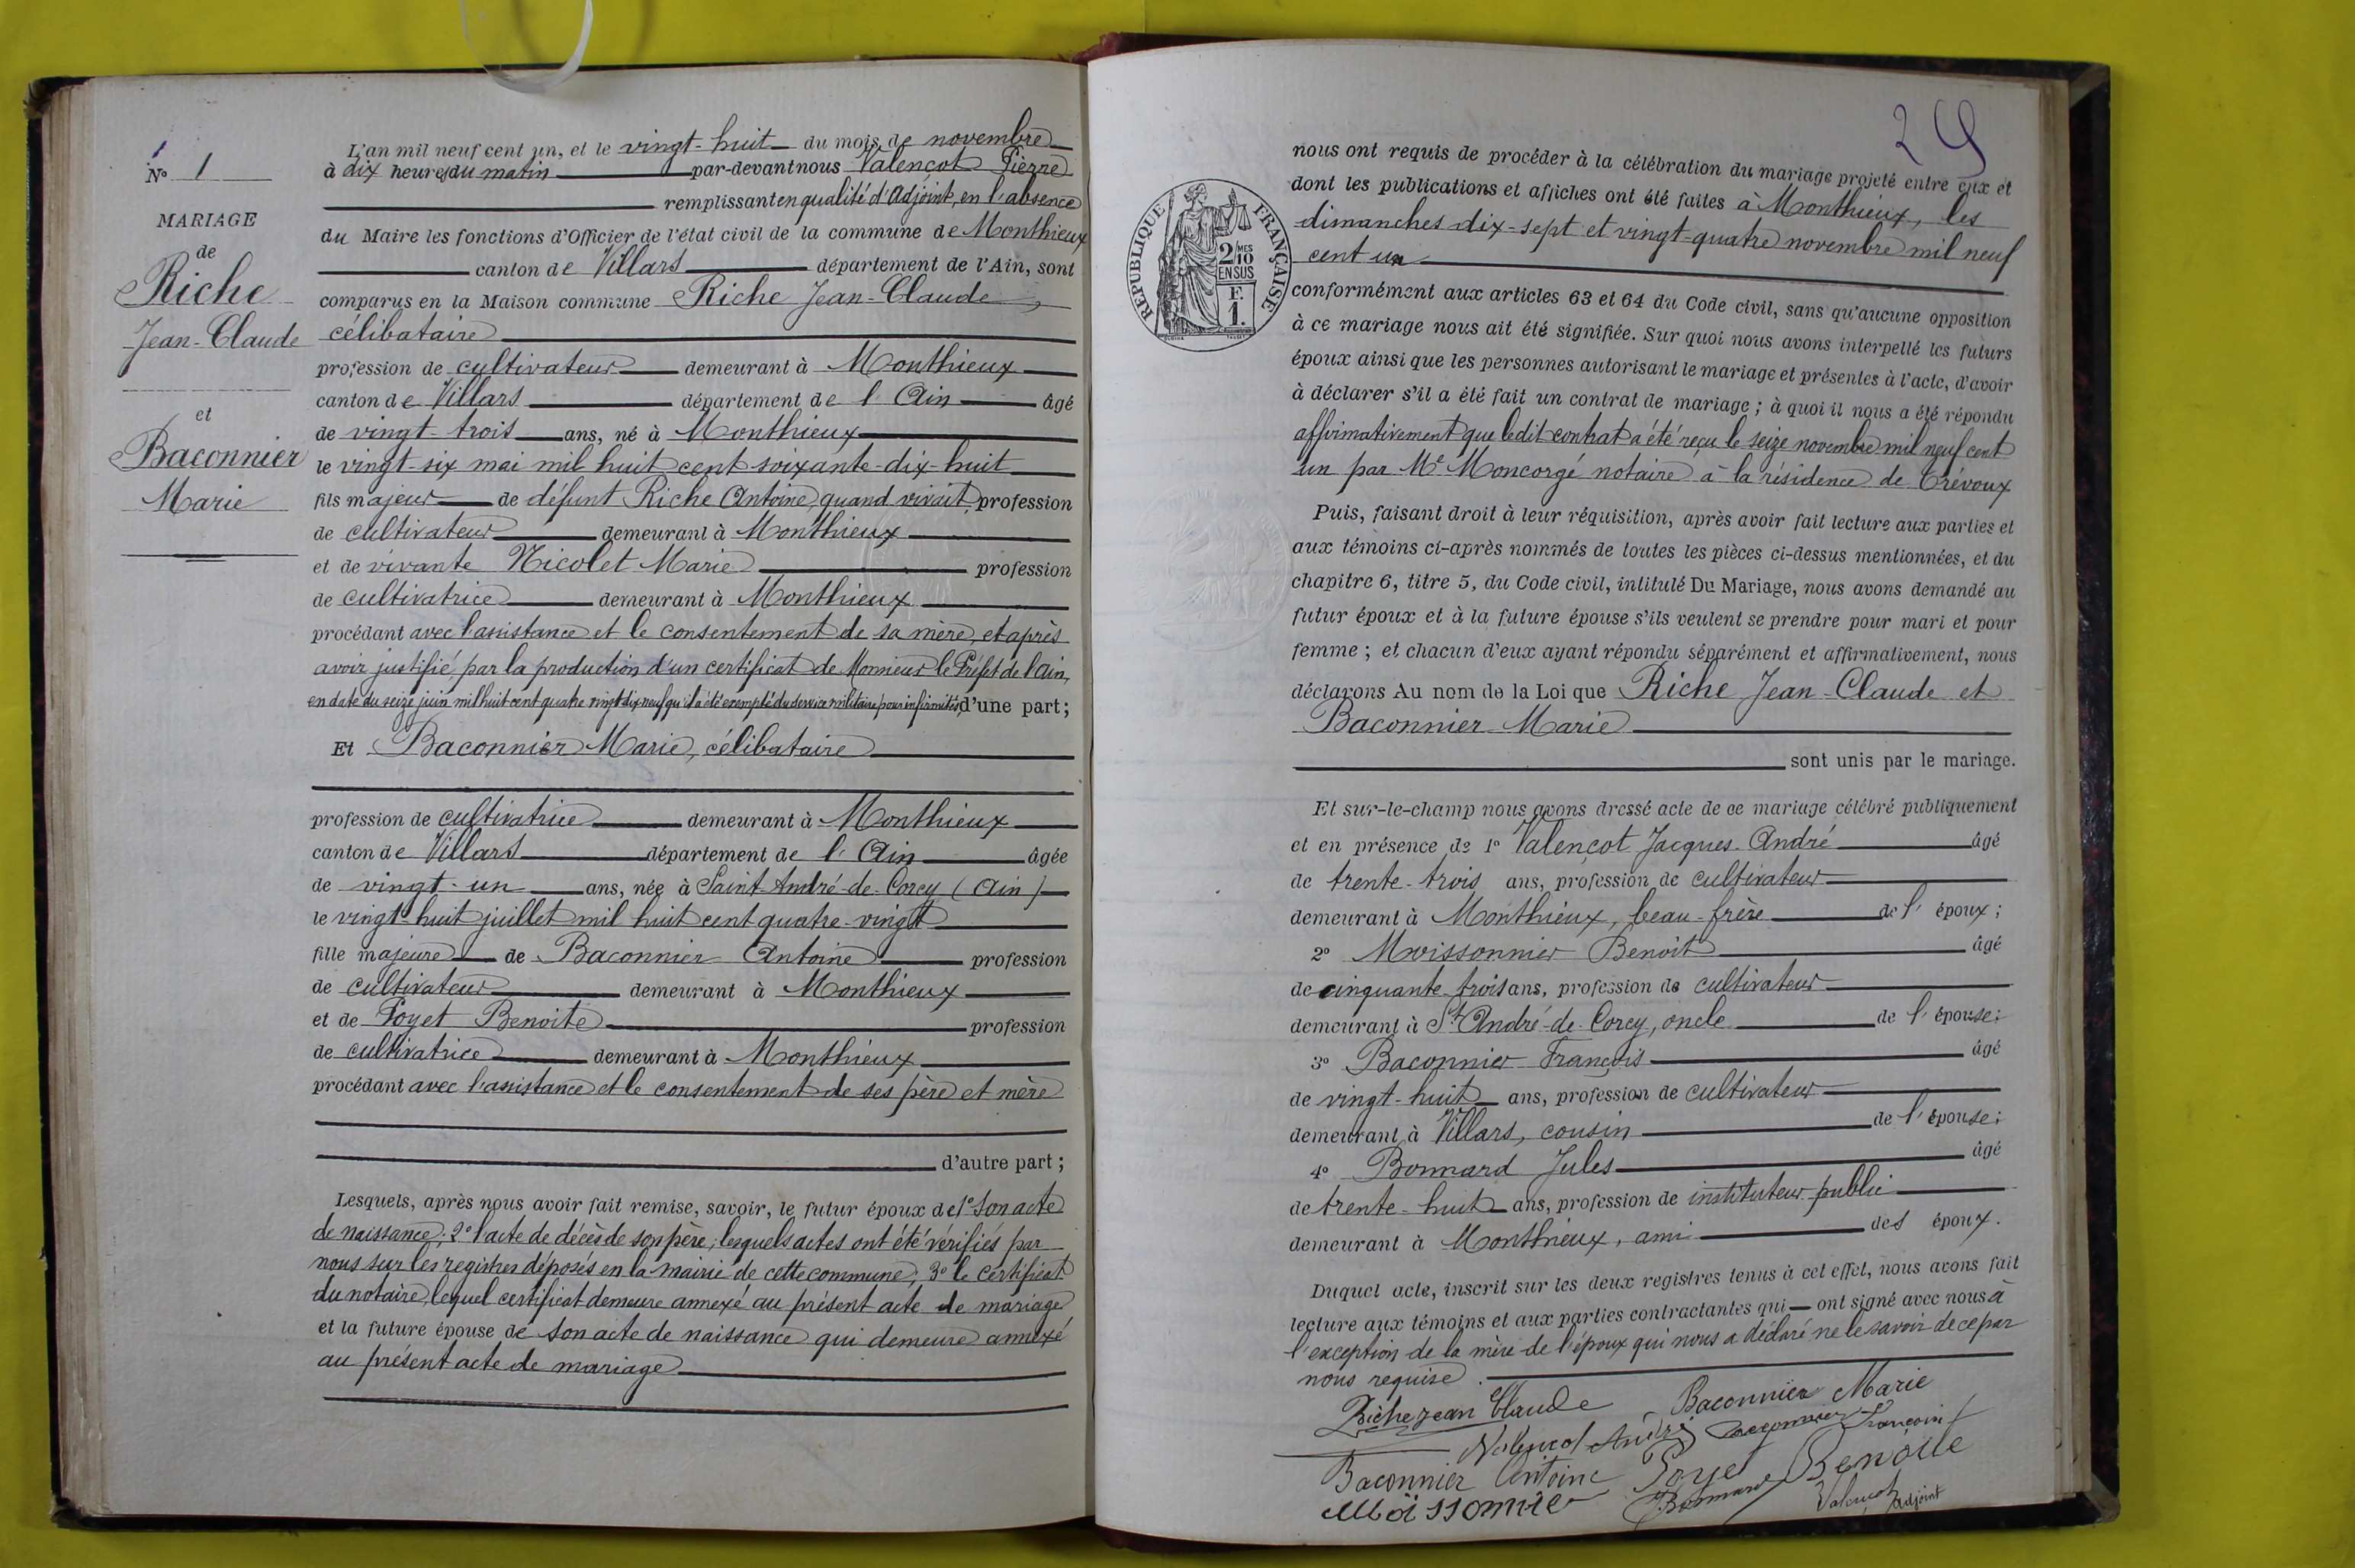 N° 1
MARIAGE
de
Riche
Jean-Claude
et
Baconnier
Marie
L'an mil neuf cent un, et le vingt-huit du mois de novembre
à dix heures du matin par-devant nous Valençot Pierre
remplissant en qualité d'Adjoint, en l'absence
du Maire les fonctions d'Officier de l'état civil de la commune de Monthieux
canton de Villars département de l'Ain, sont
comparus en la Maison commune Riche Jean-Claude,
célibataire
profession de cultivateur demeurant à Monthieux
canton de Villars département de l'Ain âgé
de vingt-trois ans, né à Monthieux
le vingt-six mai mil huit cent soixante-dix-huit
fils majeur de défunt Riche Antoine, quand vivait, profession
de cultivateur demeurant à Monthieux
et de vivante Nicolet Marie profession
de cultivatrice demeurant à Monthieux
procédant avec l'assistance et le consentement de sa mère, et après
avoir justifié, par la production d'un certificat de Monsieur le Préfet de l'Ain,
en date du seize juin mil huit cent quatre vingt dix neuf qu'il a été exempté du service militaire pour infirmités, d'une part;
Et Baconnier Marie, célibataire
profession de cultivatrice demeurant à Monthieux
canton de Villars département de l'Ain âgée
de vingt-un ans, née à Saint-André-de-Corcy (Ain)
le vingt huit juillet mil huit cent quatre-vingt
fille majeure de Baconnier Antoine profession
de cultivateur demeurant à Monthieux
et de Poyet Benoite profession
de cultivatrice demeurant à Monthieux
procédant avec l'assistance et le consentement de ses père et mère
d'autre part;
Lesquels, après nous avoir fait remise, savoir, le futur époux de 1° son acte
de naissance; 2° l'acte de décès de son père; lesquels actes ont été vérifiés par
nous sur les registres déposés en la mairie de cette commune; 3° le certificat
du notaire, lequel certificat demeure annexé au présent acte de mariage
et la future épouse de son acte de naissance qui demeure annexé
au présent acte de mariage
29
RÉPUBLIQUE FRANÇAISE
2 MES 10
EN SUS
F.
1.
nous ont requis de procéder à la célébration du mariage projeté entre eux et
dont les publications et affiches ont été faites à Monthieux, les
dimanches dix-sept et vingt-quatre novembre mil neuf
cent un
conformément aux articles 63 et 64 du Code civil, sans qu'aucune opposition
à ce mariage nous ait été signifiée. Sur quoi nous avons interpellé les futurs
époux ainsi que les personnes autorisant le mariage et présentes à l'acte, d'avoir
à déclarer s'il a été fait un contrat de mariage; à quoi il nous a été répondu
affirmativement que ledit contrat a été reçu le seize novembre mil neuf cent
un par Me Moncorgé notaire à la résidence de Trévoux
Puis, faisant droit à leur réquisition, après avoir fait lecture aux parties et
aux témoins ci-après nommés de toutes les pièces ci-dessus mentionnées, et du
chapitre 6, titre 5, du Code civil, intitulé Du Mariage, nous avons demandé au
futur époux et à la future épouse s'ils veulent se prendre pour mari et pour
femme; et chacun d'eux ayant répondu séparément et affirmativement, nous
déclarons Au nom de la Loi que Riche Jean-Claude et
Baconnier Marie
sont unis par le mariage.
Et sur-le-champ nous avons dressé acte de ce mariage célébré publiquement
et en présence de 1° Valençot Jacques-André âgé
de trente-trois ans, profession de cultivateur
demeurant à Monthieux, beau-frère de l'époux;
2° Moissonnier Benoît âgé
de cinquante-trois ans, profession de cultivateur
demeurant à St André-de-Corcy, oncle de l'épouse;
3° Baconnier François âgé
de vingt-huit ans, profession de cultivateur
demeurant à Villars, cousin de l'épouse;
4° Bonnard Jules âgé
de trente-huit ans, profession de instituteur public
demeurant à Monthieux, ami des époux.
Duquel acte, inscrit sur les deux registres tenus à cet effet, nous avons fait
lecture aux témoins et aux parties contractantes qui ont signé avec nous à
l'exception de la mère de l'époux qui nous a déclaré ne le savoir de ce par
nous requise.
Riche jean Claude Baconnier Marie
Valencot André Baconnier François
Baconnier Antoine Poyet Benoite
Moissonnier Bonnard Valençot adjoint